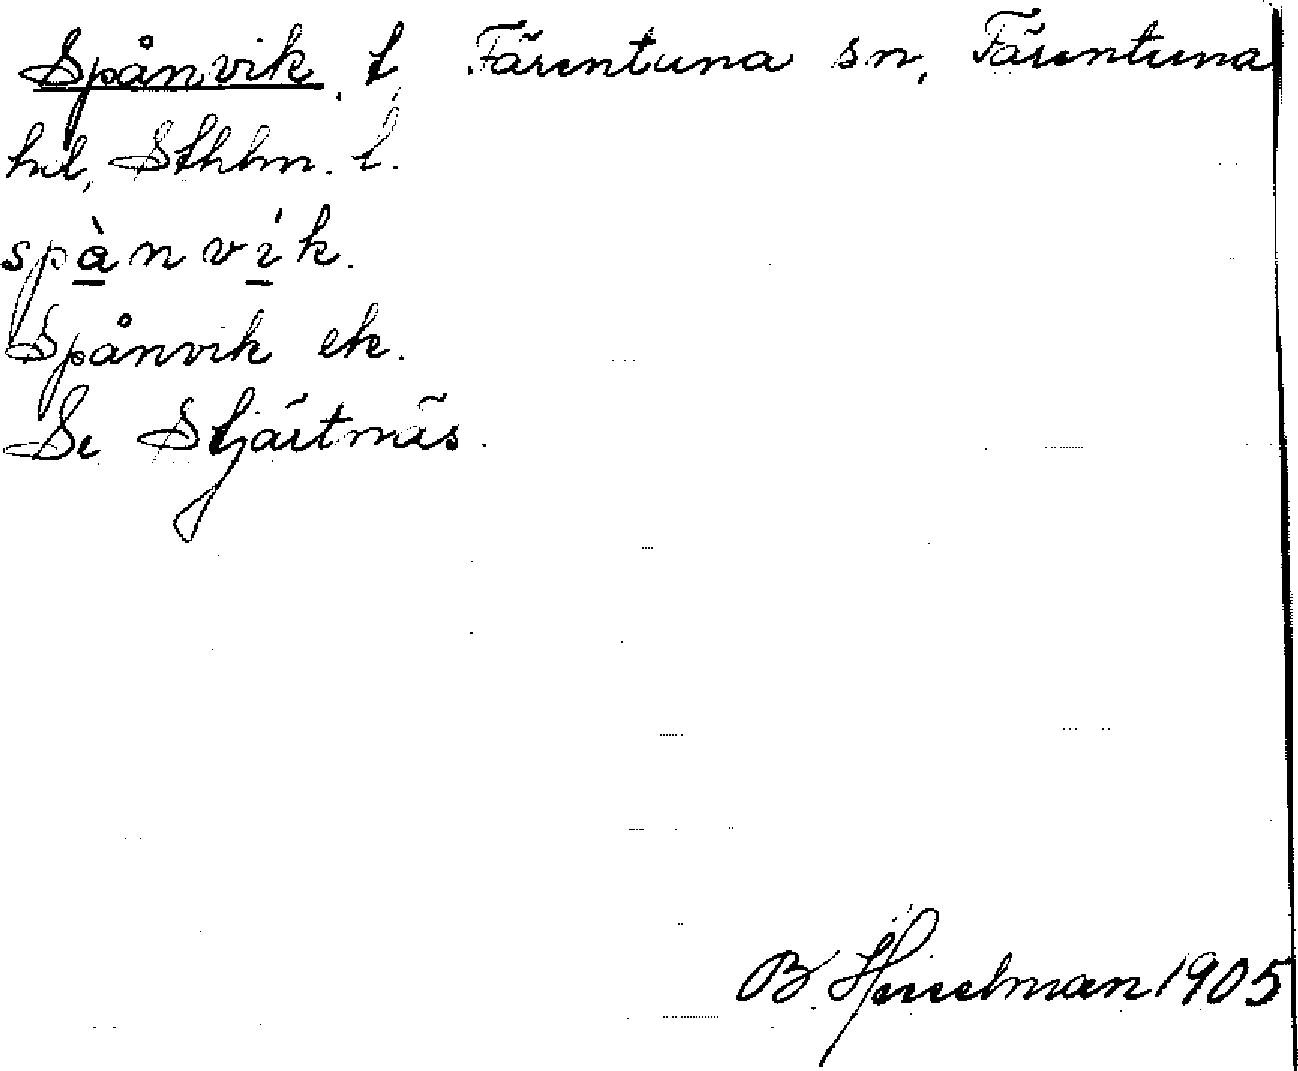 Spånvik, t, Färentuna sn, Färentuna
hd, Sthlm. l.
spànvík.
Spånvik ek.
Se Stjärtnäs.
B. Hesselman 1905